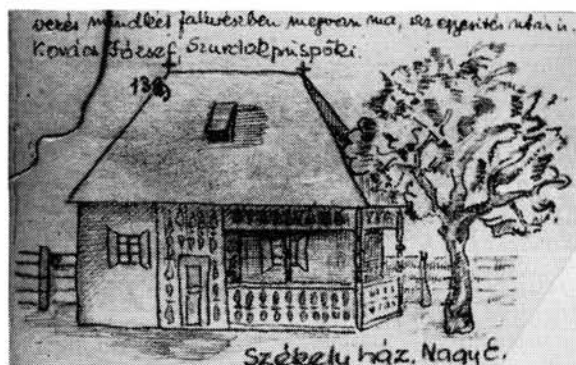 verés mindkét falurészben megvan ma, az egyesítés után is.
Kovács József, Szurdokpüspöki.
138)
Székely ház. Nagy E.